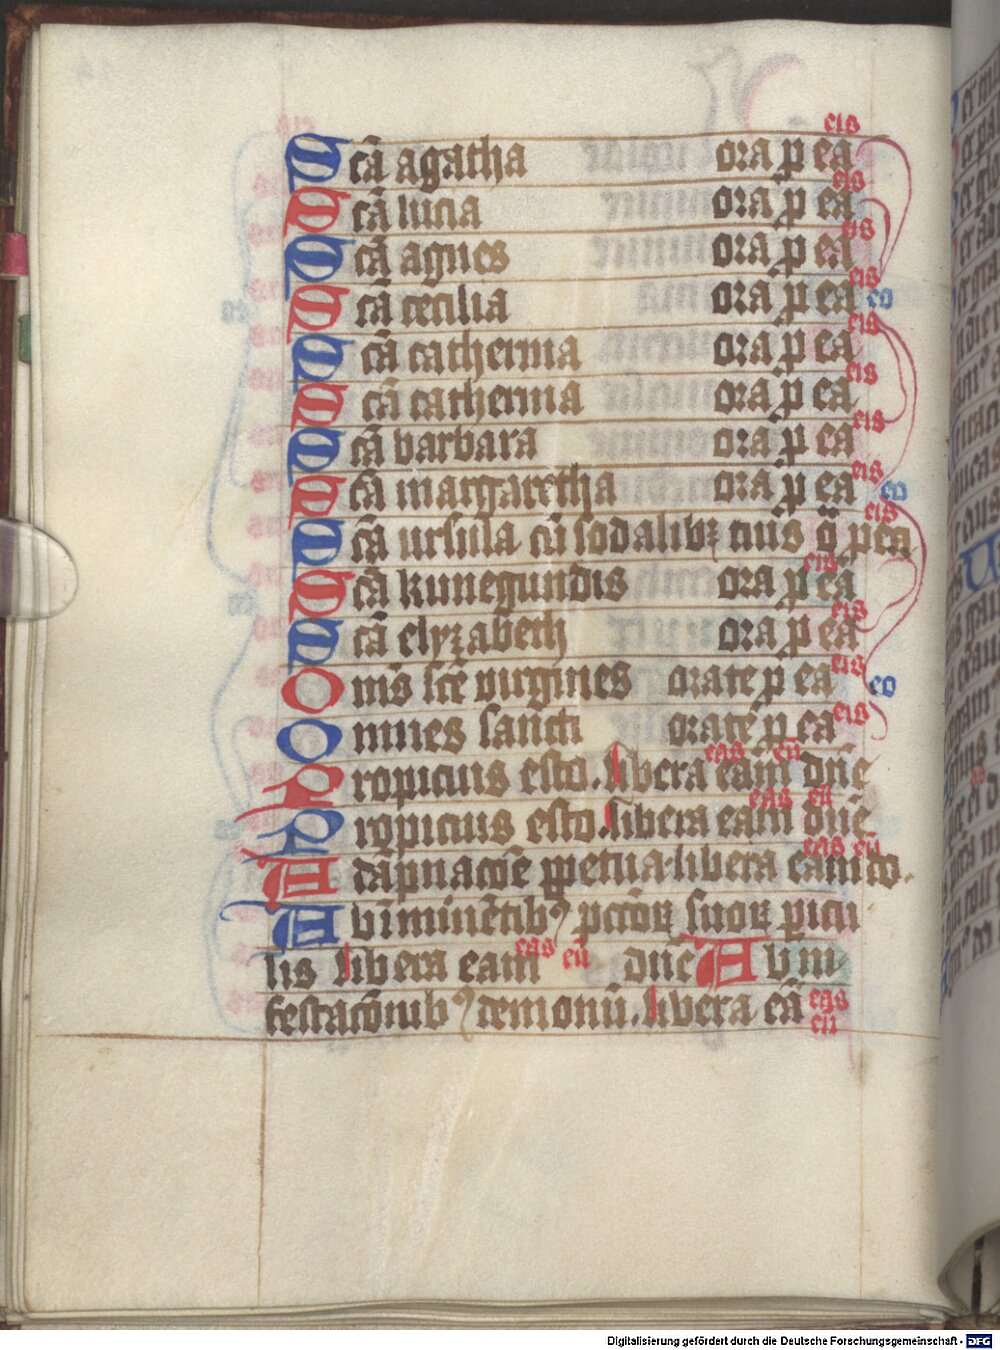 eis
Scā agatha ora p ea
eis
Scā lucia ora p ea
eis
Scā agnes ora p ea
eis
Scā cecilia ora p ea eo
eis
Scā catherina ora p ea
eis
Scā catherina ora p ea
eis
Scā barbara ora p ea
eis
Scā margaretha ora p ea eo
eis
Scā ursula cū sodalibꝫ tuis o p ea
eis
Scā kunegundis ora p ea
eis
Scā elyzabeth ora p ea
eis
Omēs scē virgines orate p ea eo
eis
Omnes sancti orate p ea
eas eū
Propicius esto. libera eam dñe
eas eū
Propicius esto. libera eam dñe
eas eū
A dāpnacōe ꝑpetua libera eam do.
Ab iminētibꝰ pctōꝝ suoꝝ picu
lis libera eam eas eū dñe Ab in
festacōnibꝰ demonū. libera eā eas
eū
Digitalisierung gefördert durch die Deutsche Forschungsgemeinschaft - DFG